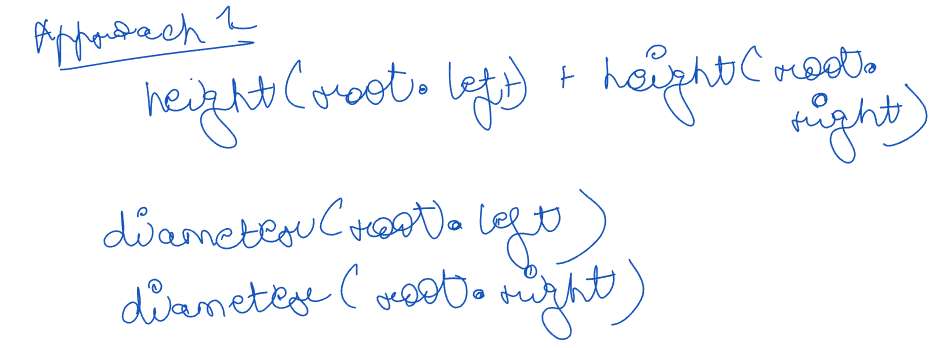 Approach 1
height(root.left) + height(root.
right)
diameter(root.left)
diameter(root.right)